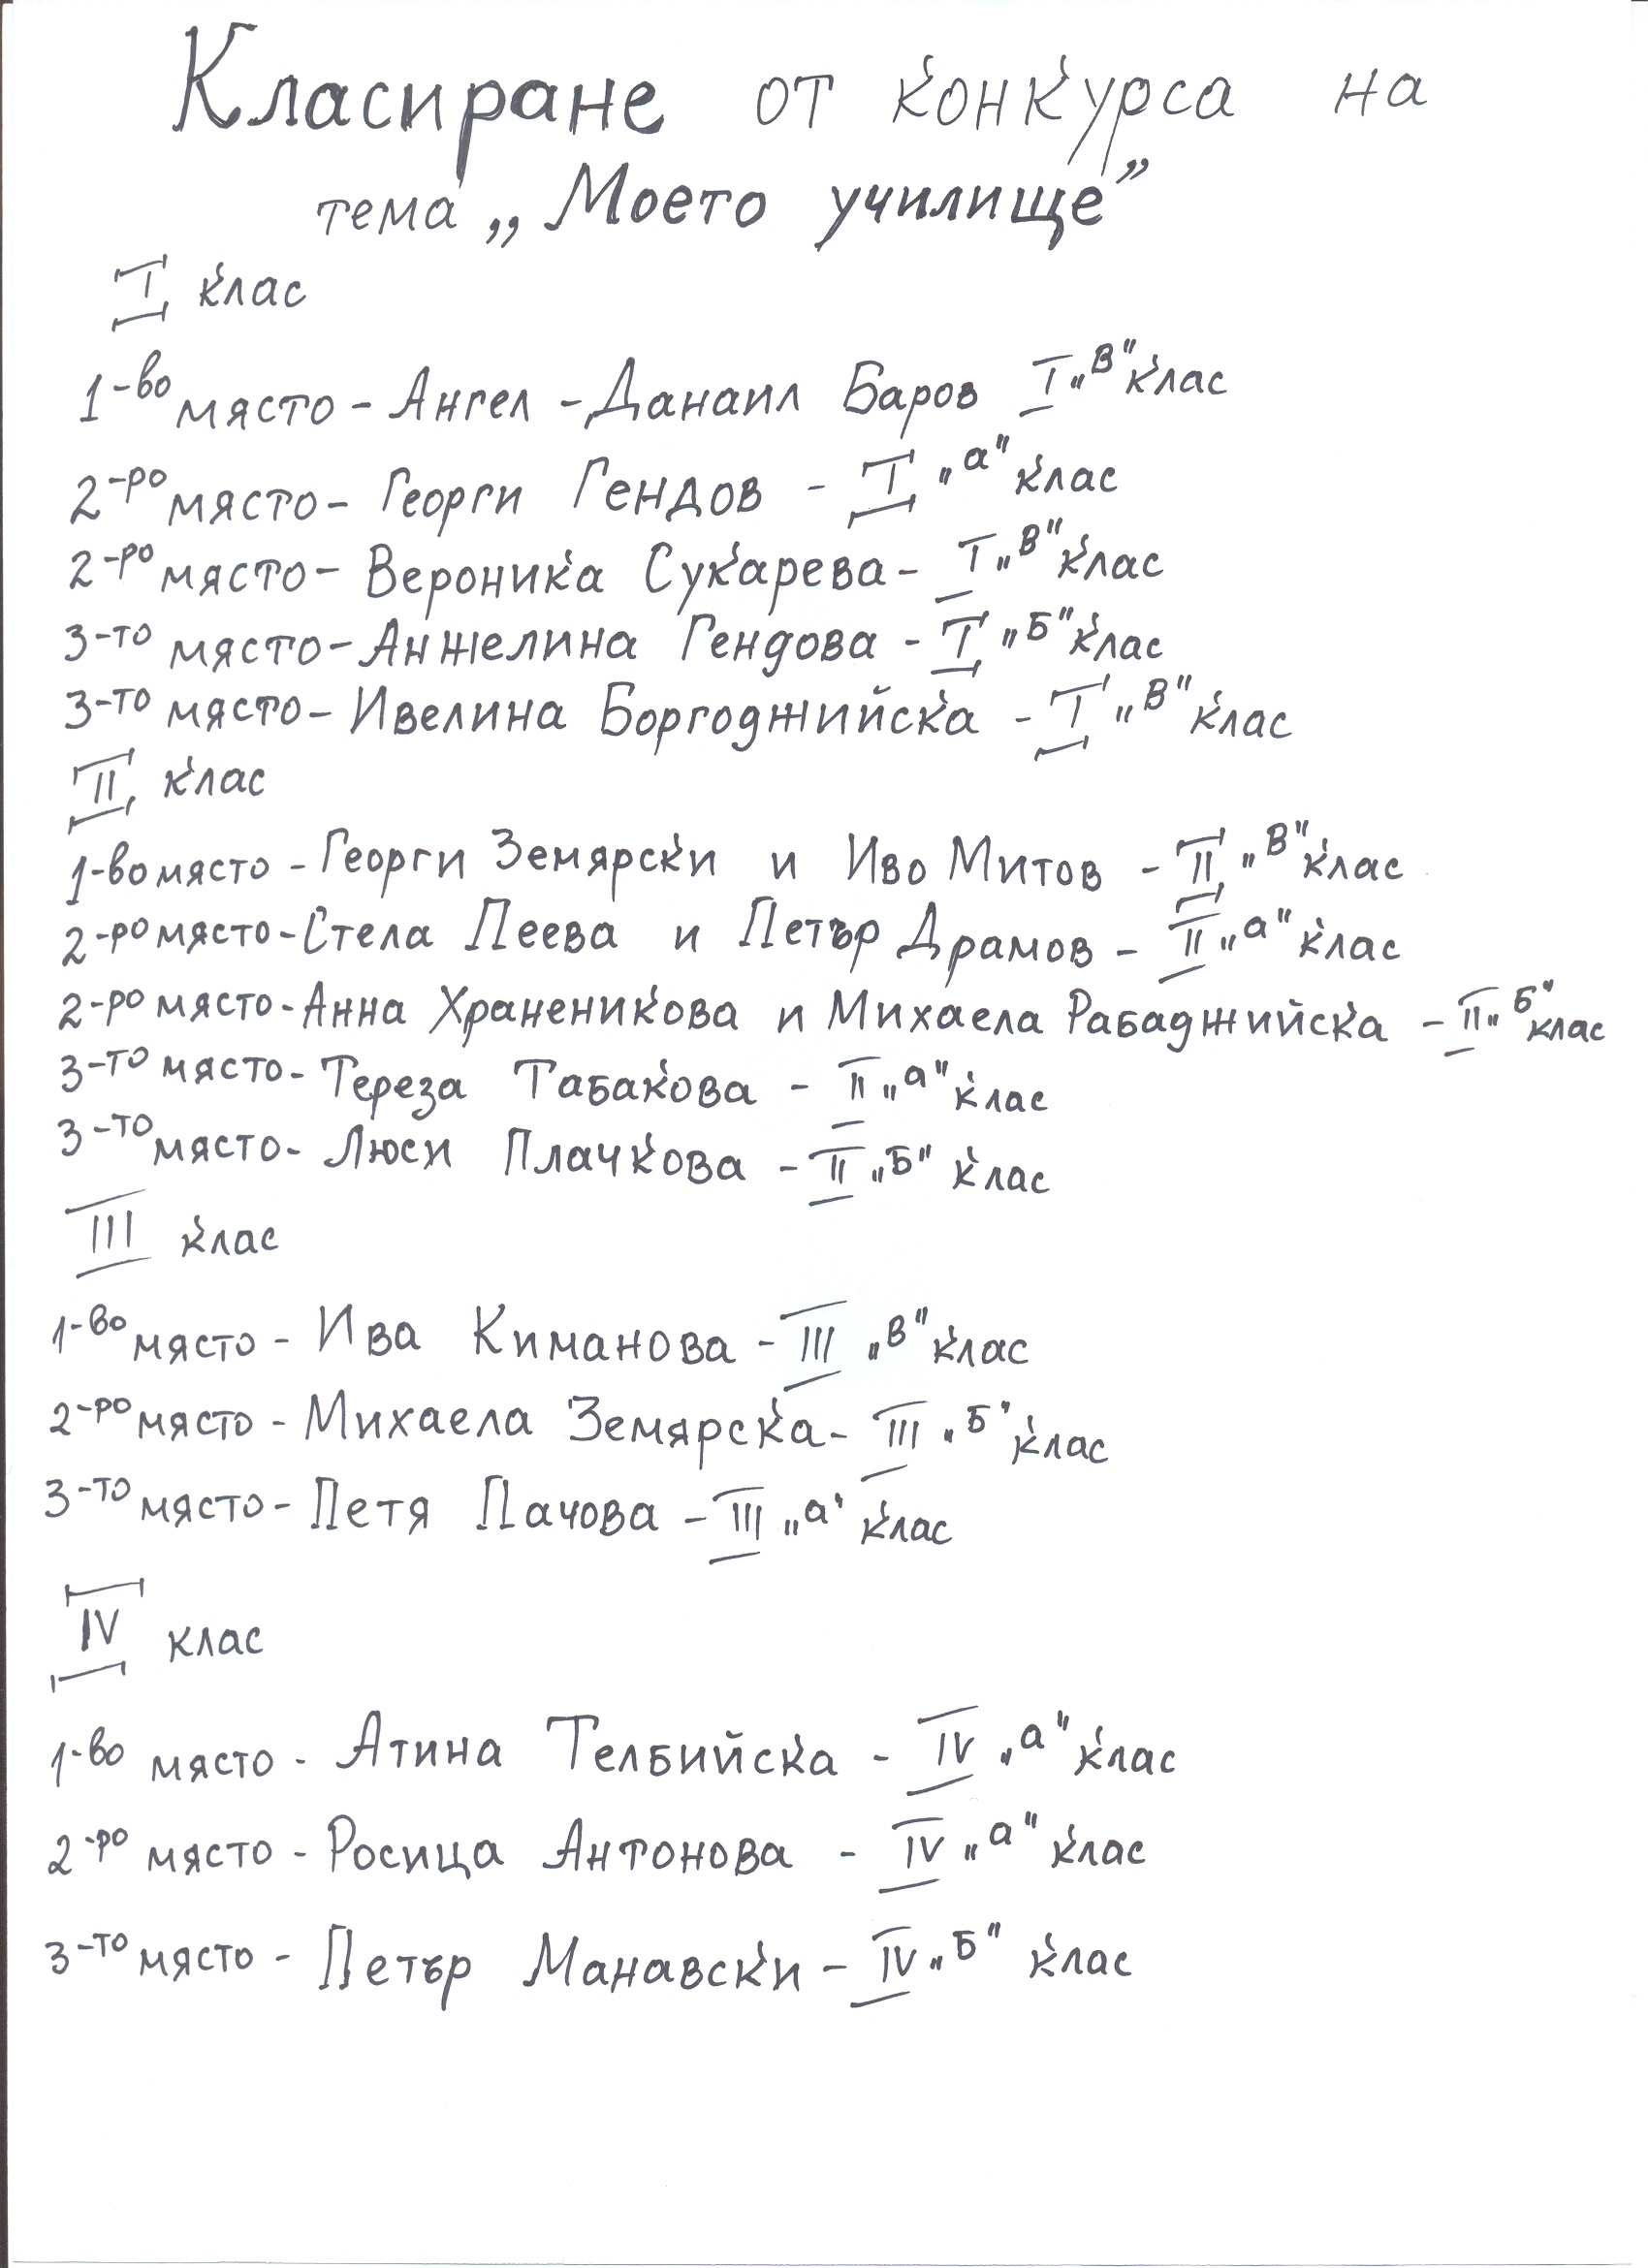 Класиране от конкурса на
тема „Моето училище”
I клас
1-во място - Ангел - Данаил Баров I „В" клас
2-ро място - Георги Гендов - I „а" клас
2-ро място - Вероника Сукарева - I „В" клас
3-то място - Анжелина Гендова - I „Б" клас
3-то място - Ивелина Боргоджийска - I „В" клас
II клас
1-во място - Георги Земярски и Иво Митов - II „В" клас
2-ро място - Стела Пеева и Петър Драмов - II „а" клас
2-ро място - Анна Храненикова и Михаела Рабаджийска - II „Б" клас
3-то място - Тереза Табакова - II „а" клас
3-то място - Люси Плачкова - II „Б" клас
III клас
1-во място - Ива Киманова - III „В" клас
2-ро място - Михаела Земярска - III „Б" клас
3-то място - Петя Пачова - III „а" клас
IV клас
1-во място - Атина Телбийска - IV „а" клас
2-ро място - Росица Антонова - IV „а" клас
3-то място - Петър Манавски - IV „Б" клас